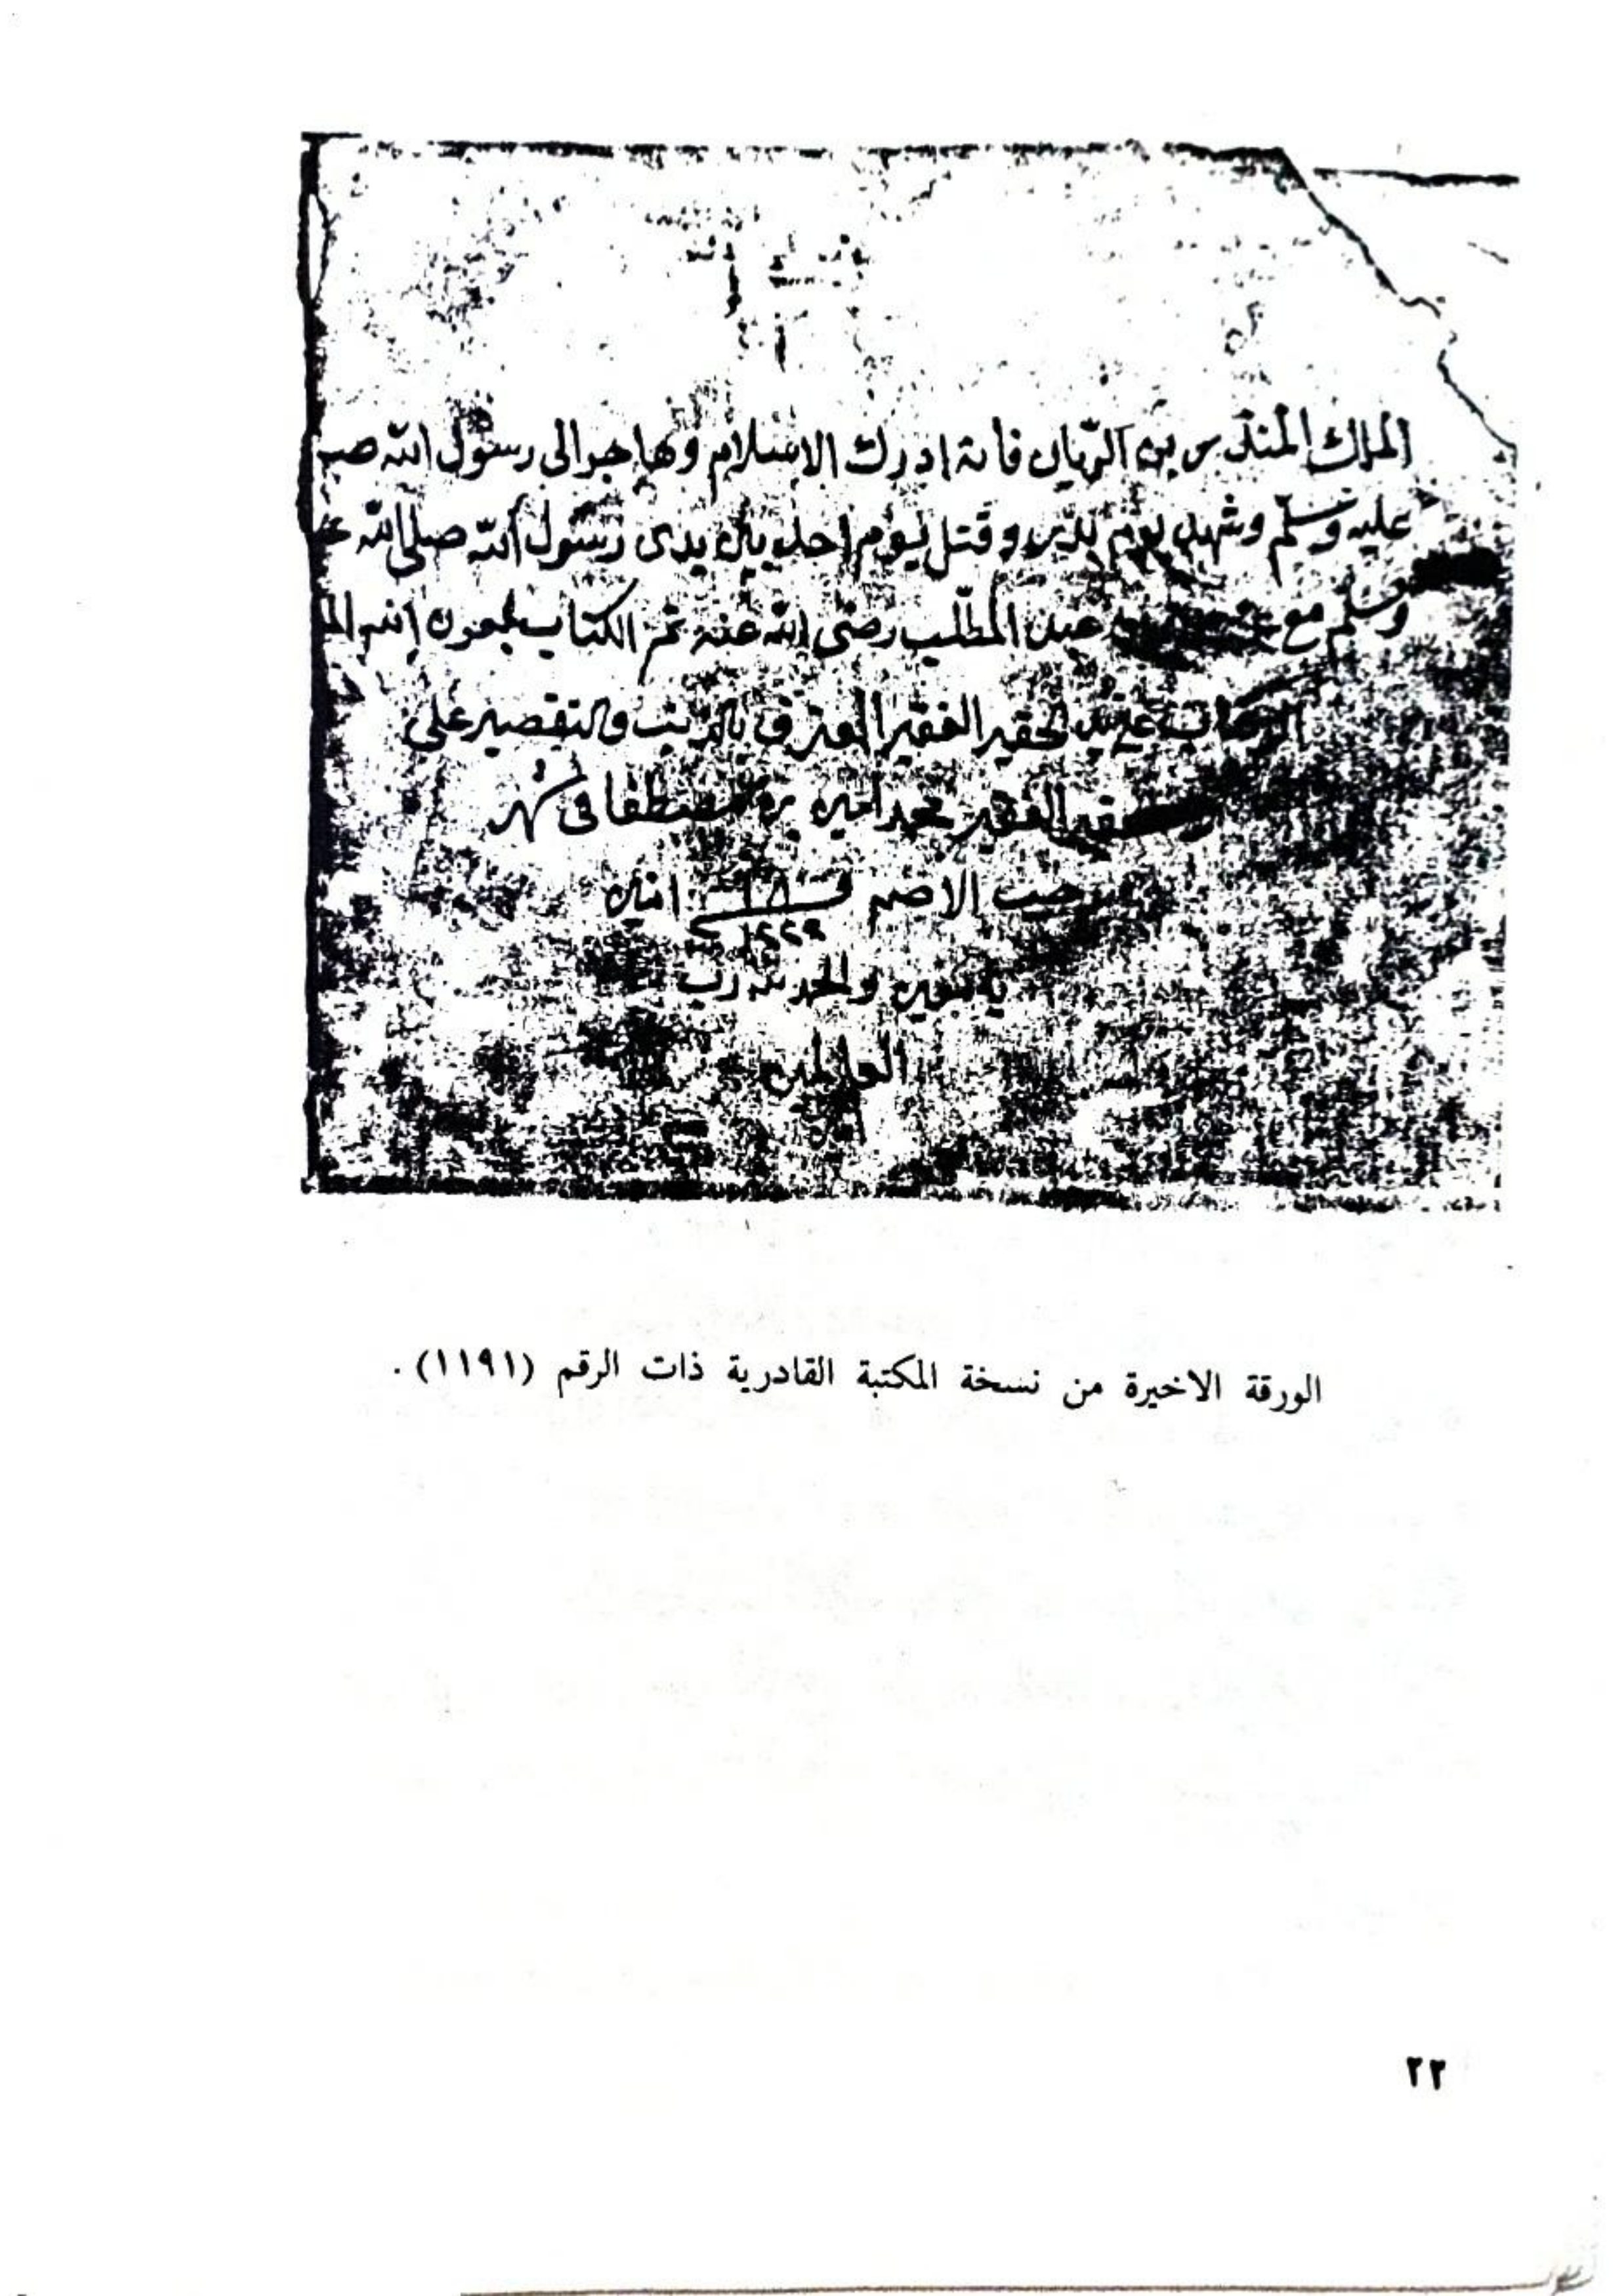 الملك المندرس بن الريان فانه ادرك الاسلام وهاجر الى رسول الله ص
عليه وسلم وشهد يوم بدر وقتل يوم احد بين يدى رسول الله صلى الله ع
وسلم مع عبد المطلب رضى الله عنه تم الكتاب بعون الله الم
على يد الحقير الفقير المعترف بالذنب والتقصير على
الفقير محمد امين بن مصطفا فى شهر
رجب الاصم فى ١٨ امين
١٢٢٩
والحمد لله رب
العالمين
امين
الورقة الاخيرة من نسخة المكتبة القادرية ذات الرقم (١١٩١) .
٢٢